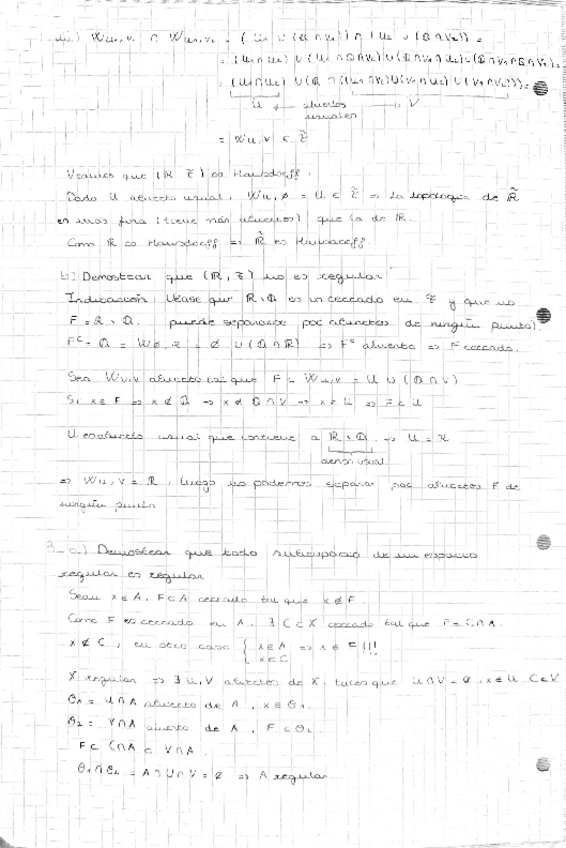 iii) Wu₁,v₁ ∩ Wu₂,v₂ = (U₁ ∪ (Q ∩ V₁)) ∩ (U₂ ∪ (Q ∩ V₂)) =
= (U₁∩U₂) ∪ (U₁ ∩ Q∩V₂) ∪ (Q∩V₁∩U₂) ∪ (Q∩V₁∩Q∩V₂) =
= (U₁∩U₂) ∪ (Q ∩ ((U₁∩V₂) ∪ (V₁∩U₂) ∪ (V₁∩V₂))) =
U ← abiertos → V
usuales
= Wu,v ∈ τ̃
Veamos que (R, τ̃) es Hausdorff.
Dado U abierto usual, Wu,∅ = U ∈ τ̃ ⇒ La topología de R̃
es más fina (tiene más abiertos) que la de R.
Como R es Hausdorff ⇒ R̃ es Hausdorff.
b) Demostrar que (R, τ̃) no es regular
Indicación: Véase que R\Q es un cerrado en τ̃ y que no
F = R\Q. puede separarse por abiertos de ningún punto).
Fᶜ = Q = W∅,R = ∅ ∪ (Q∩R) ⇒ Fᶜ abierto ⇒ F cerrado.
Sea Wu,v abierto tal que F ⊂ Wu,v = U ∪ (Q∩V)
Si x∈F ⇒ x∉Q ⇒ x∉Q∩V ⇒ x∈U ⇒ F⊂U
U es abierto usual que contiene a R\Q ⇒ U = R
denso usual
⇒ Wu,v = R, luego no podemos separar por abiertos F de
ningún punto
3_ a) Demostrar que todo subespacio de un espacio
regular es regular
Sean x∈A, F⊂A cerrado tal que x∉F
Como F es cerrado en A, ∃ C⊂X cerrado tal que F = C∩A.
x∉C, en otro caso { x∈A ⇒ x∈F !!!
x∈C
X regular ⇒ ∃ U,V abiertos de X, tales que U∩V = ∅, x∈U, C⊂V
θ₁ = U∩A abierto de A, x∈θ₁.
θ₂ = V∩A abierto de A, F⊂θ₂.
F⊂ C∩A ⊂ V∩A.
θ₁∩θ₂ = A∩U∩V = ∅ ⇒ A regular